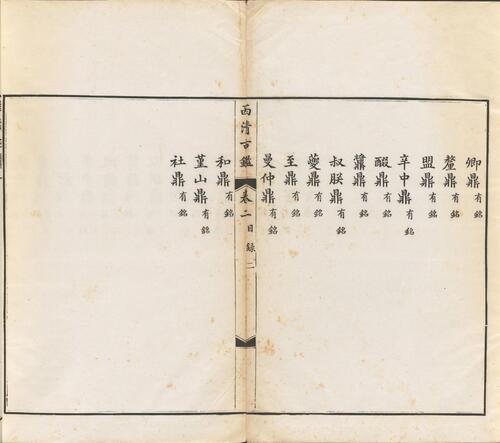 卿鼎有銘
鼇鼎有銘
盟鼎有銘
辛中鼎有銘
醊鼎有銘
鼎有銘
叔朕鼎有銘
夔鼎有銘
至鼎有銘
曼仲鼎有銘
西清古鑑 卷二目錄 二
和鼎有銘
堇山鼎有銘
社鼎有銘